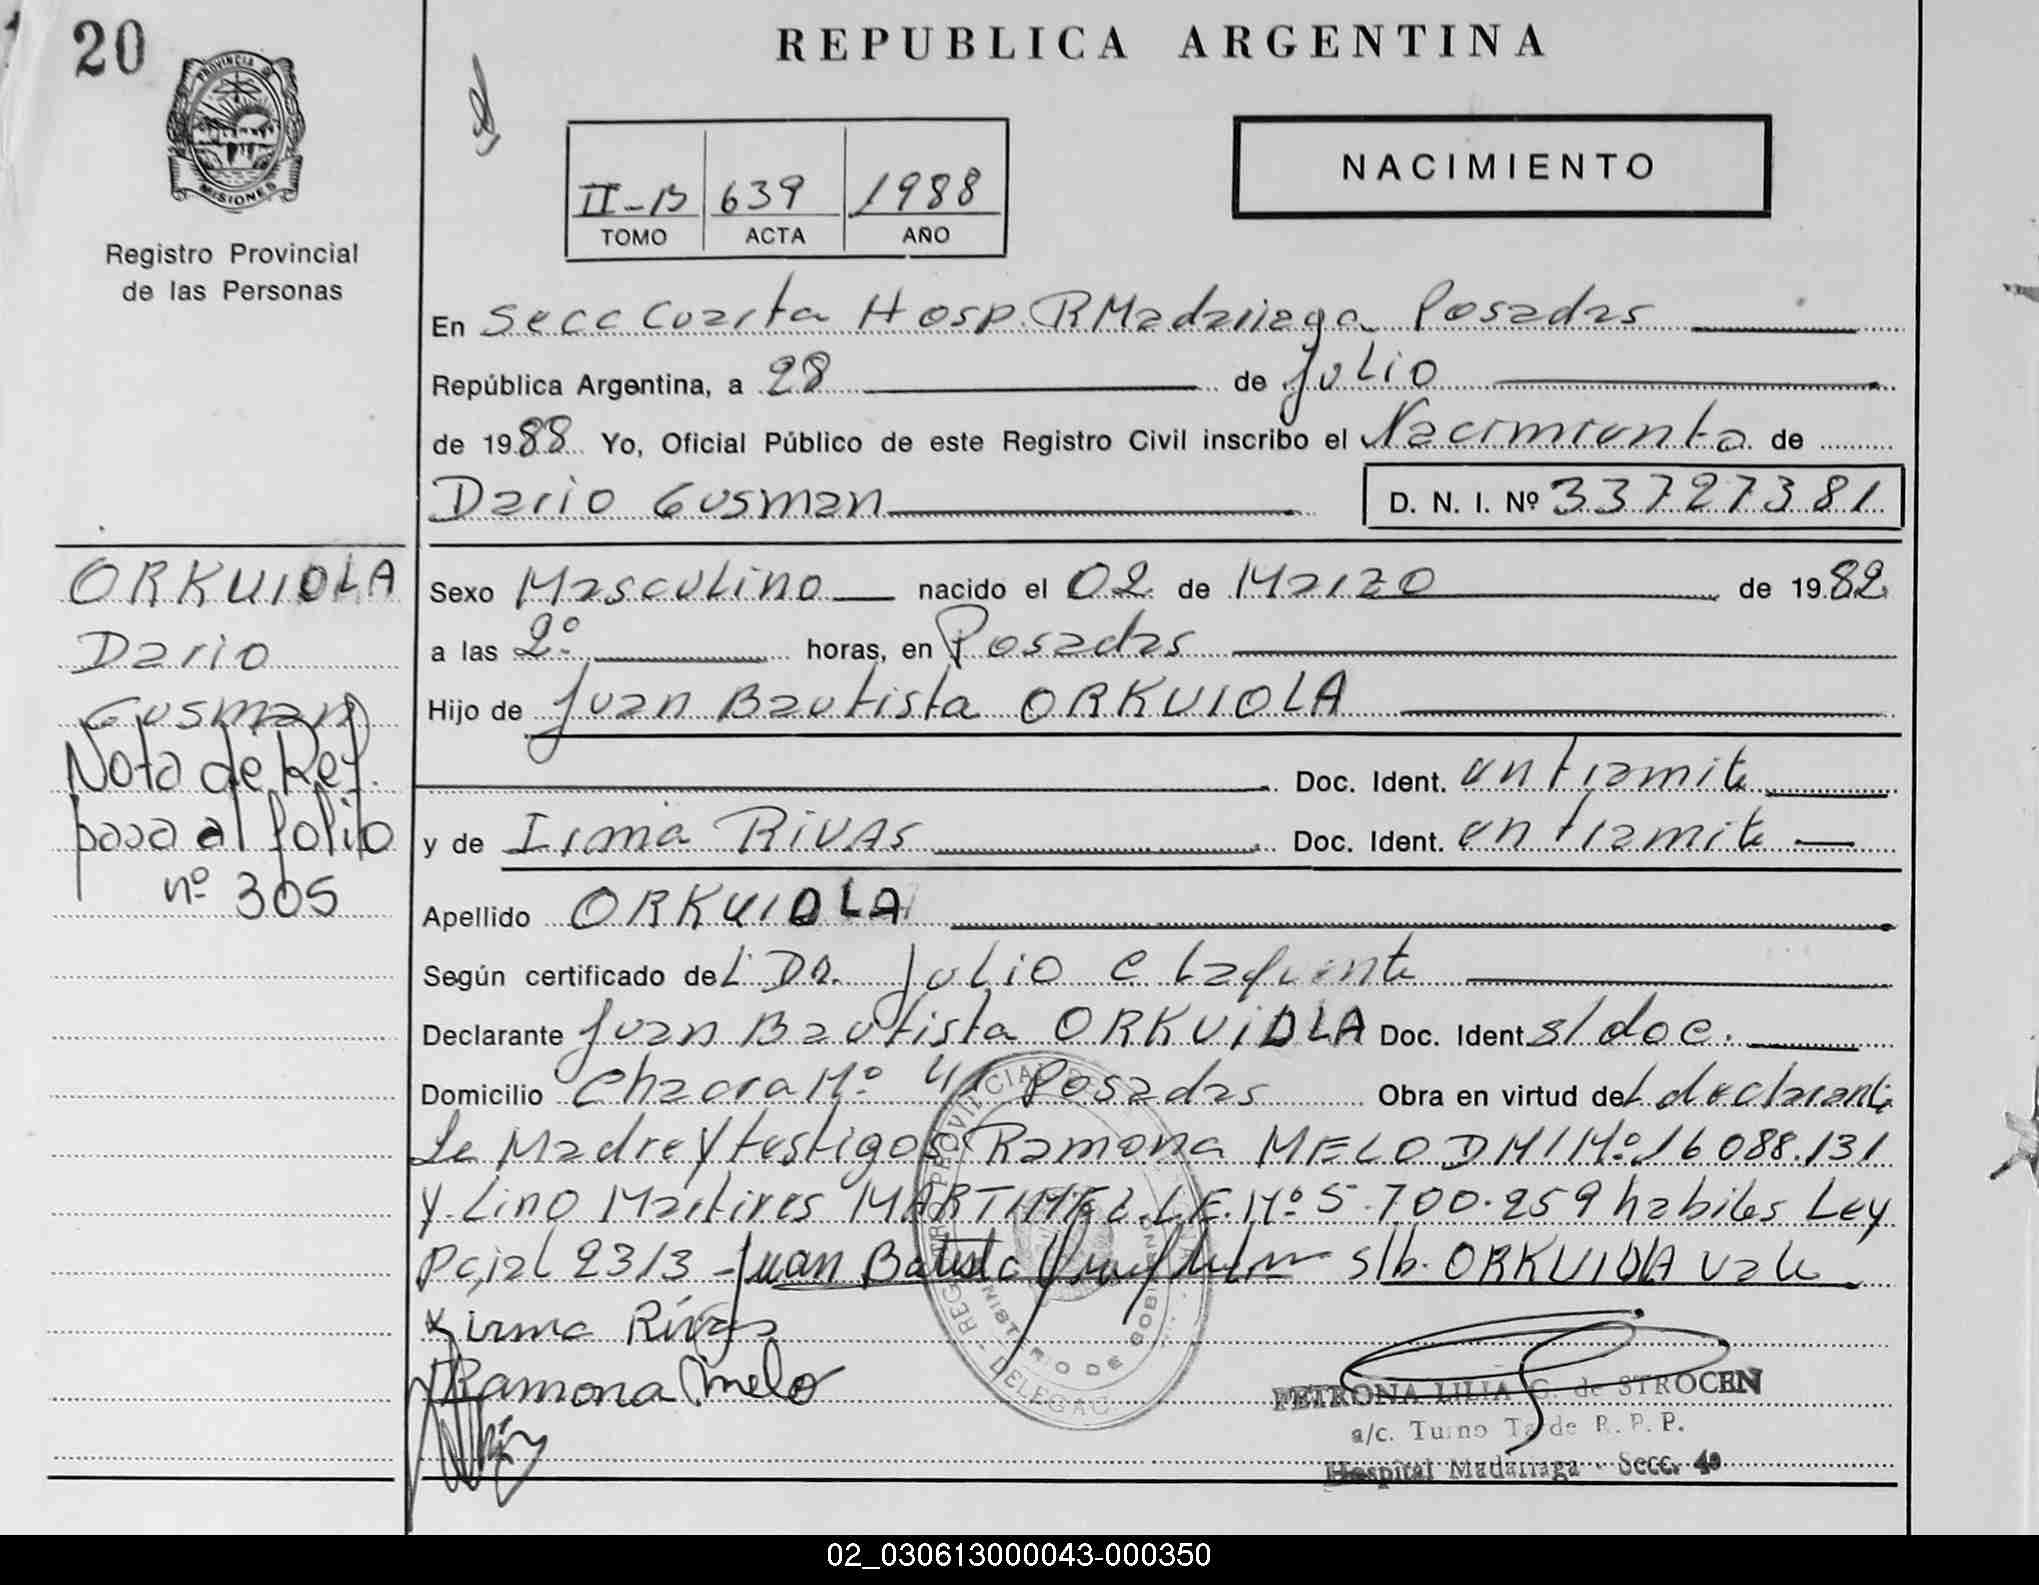 20
REPUBLICA ARGENTINA
PROVINCIA DE
MISIONES
Registro Provincial
de las Personas
II-B 639 1988
TOMO ACTA AÑO
NACIMIENTO
En Secc Cuarta Hosp. R Madariaga Posadas
República Argentina, a 28 de Julio
de 1988 Yo, Oficial Público de este Registro Civil inscribo el Nacimiento de
Dario Gusman D. N. I. Nº 33727381
ORKUIOLA
Dario
Gusman
Nota de Ref.
pasa al folio
nº 305
Sexo Masculino nacido el 02 de Marzo de 1982
a las 2º horas, en Posadas
Hijo de Juan Bautista ORKUIOLA
Doc. Ident. en tramite
y de Irma RIVAS Doc. Ident. en tramite
Apellido ORKUIOLA
Según certificado del DR. Julio C Lafuente
Declarante Juan Bautista ORKUIOLA Doc. Ident s/doc.
Domicilio Chacra Nº 41 Posadas Obra en virtud del declarante
La Madre y testigos Ramona MELO DNI Nº 16 088.131
y Lino Martires MARTINEZ L.E. Nº 5.700.259 habiles Ley
Pcial 2313 - Juan Batista s/b. ORKUIOLA vale
x irma Rivas
Ramona melo
REGISTRO PROVINCIAL DE
MINISTERIO DE GOBIERNO
DELEGAC
PETRONA LILIA G. de STROCEN
a/c. Turno Tarde R. P. P.
Hospital Madariaga - Secc. 4ª
02_030613000043-000350